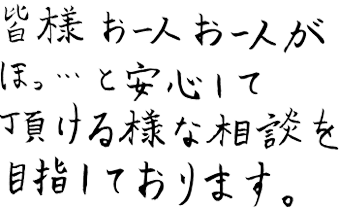 皆様 お一人お一人が
ほっ…と安心して
頂ける様な相談を
目指しております。